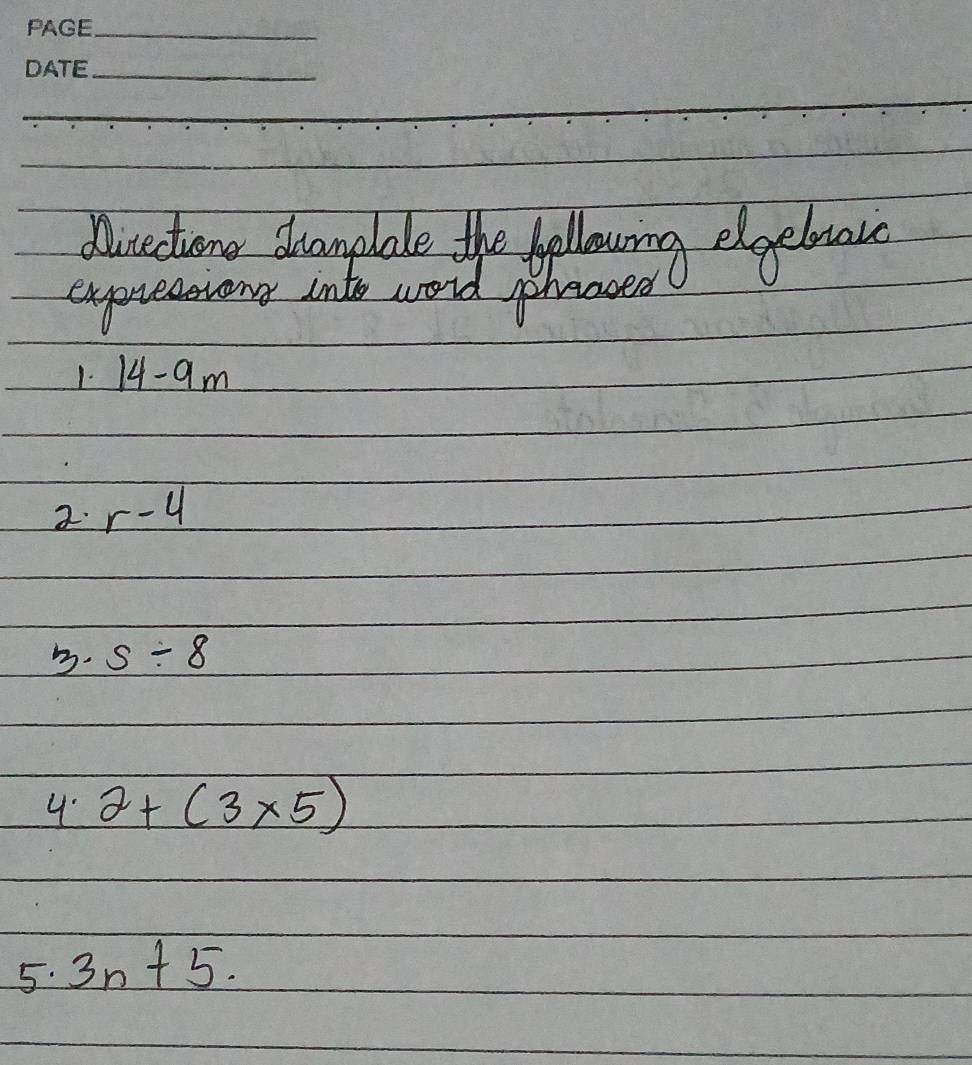 PAGE
DATE
Directions Translate the following elgebraic
expressions into word phrases
1. 14-9m
2. r-4
3. s ÷ 8
4. 2+ (3×5)
5. 3n + 5.